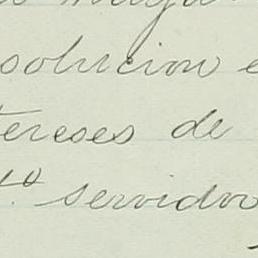 solucion e
tereses de
servidor